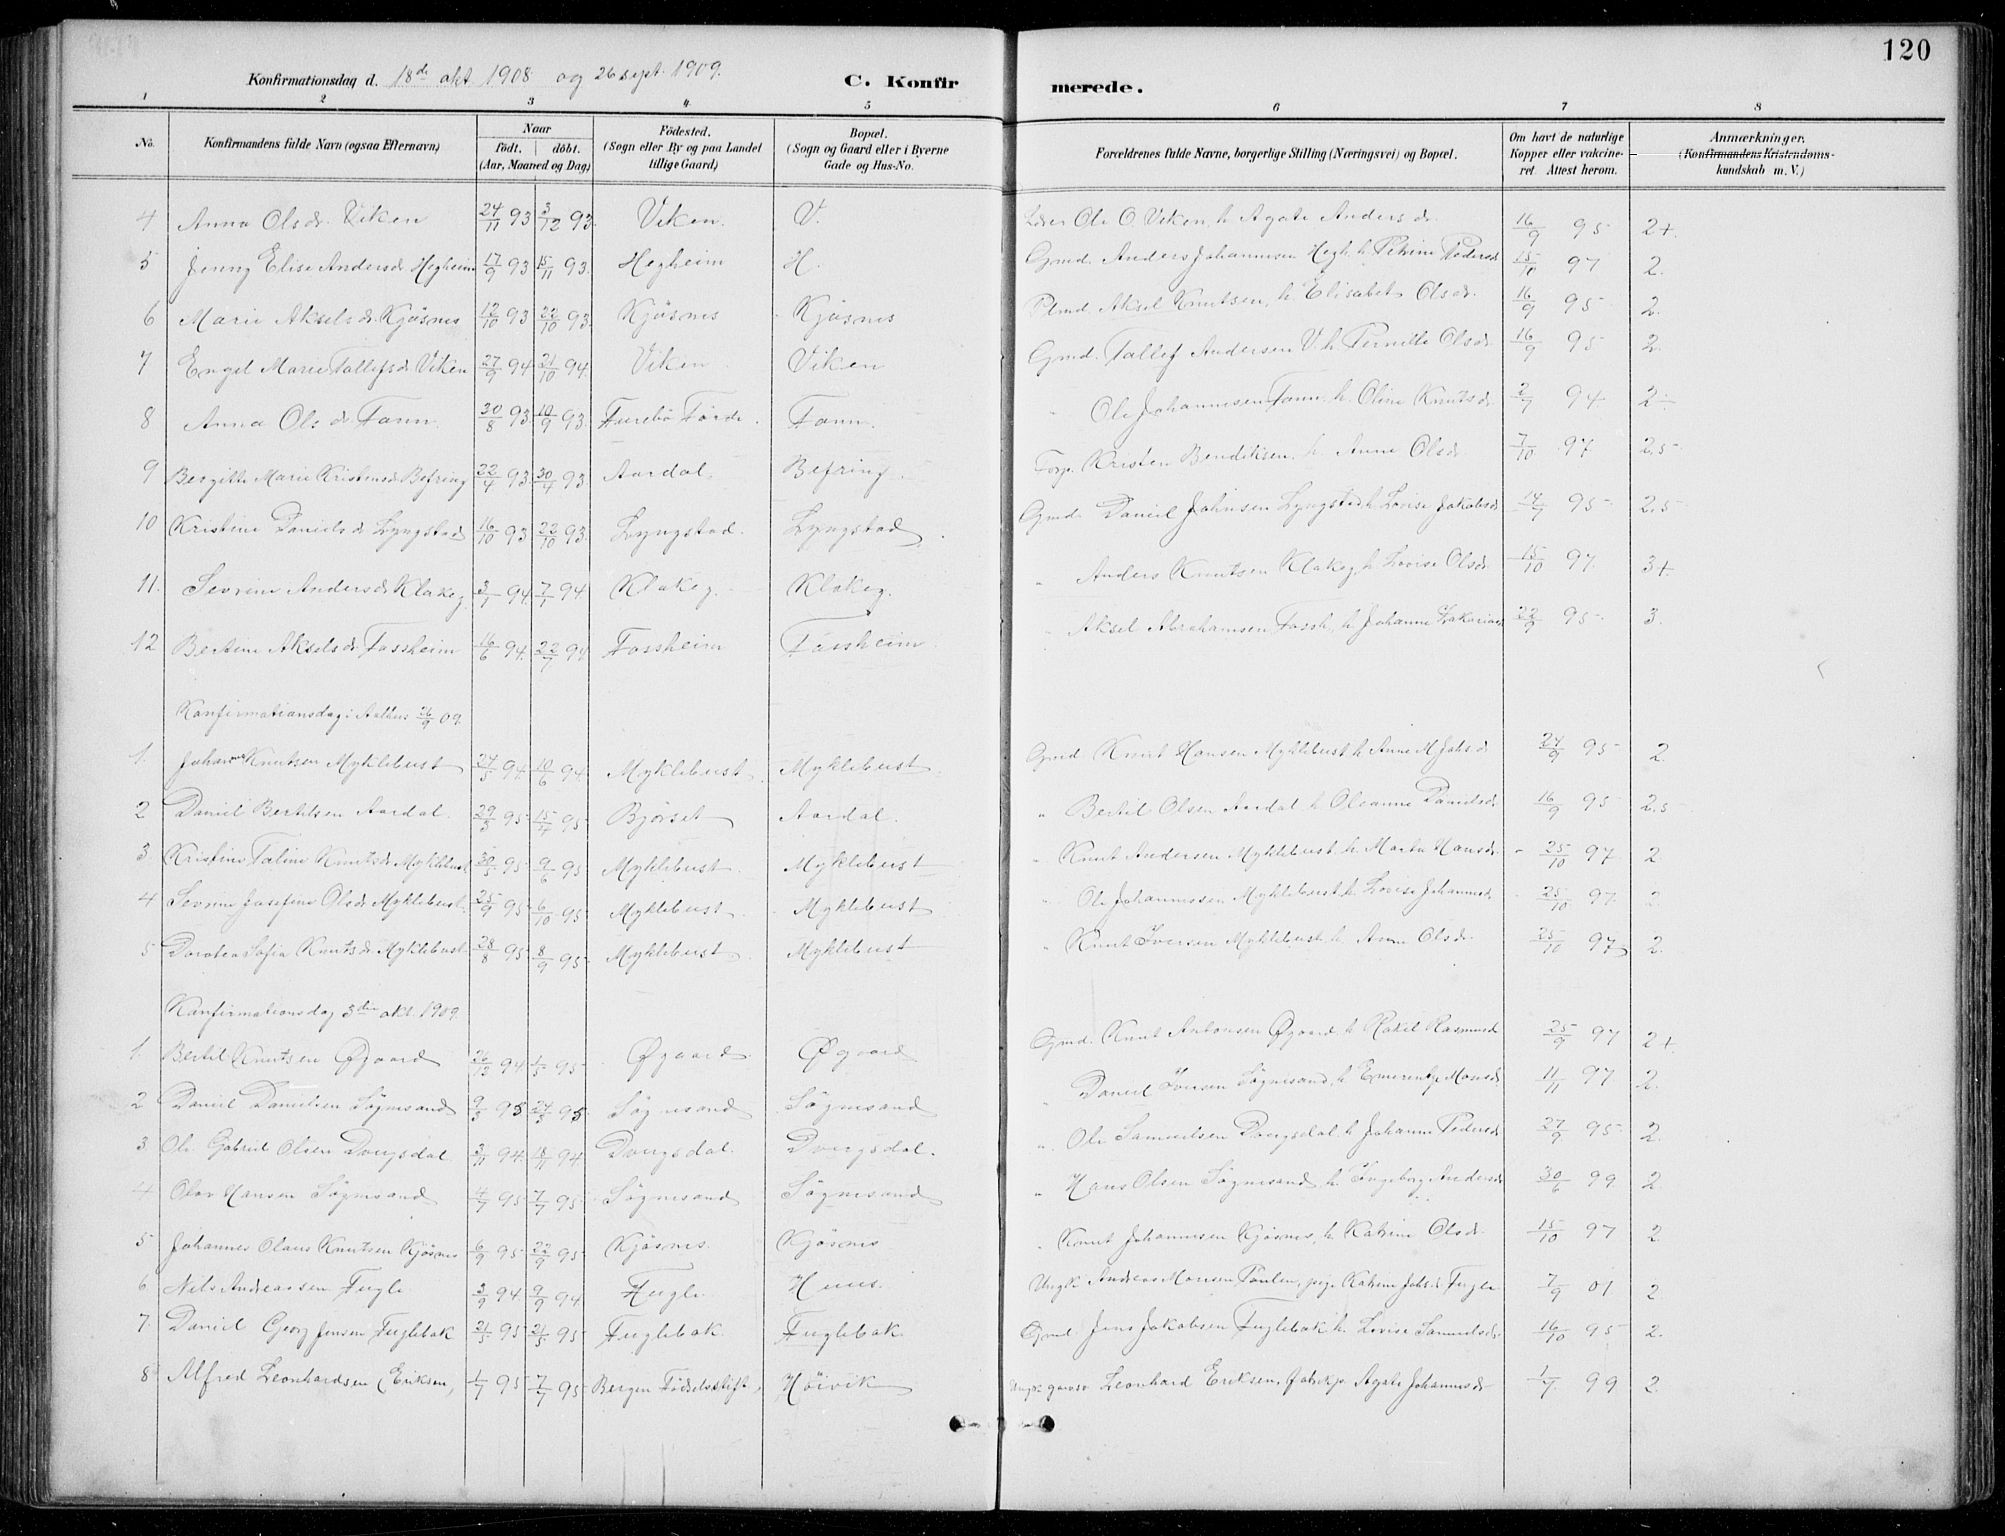 120
Konfirmationsdag d. 18de okt 1908 og 26 sept. 1909. C. Konfirmerede.
1 2 3 4 5 6 7 8
No. Konfirmandens fulde Navn (ogsaa Efternavn) Naar født. døbt. (Aar, Maaned og Dag) Fødested. (Sogn eller By og paa Landet tillige Gaard) Bopæl. (Sogn og Gaard eller i Byerne Gade og Hus-No. Forældrenes fulde Navne, borgerlige Stilling (Næringsvei) og Bopæl. Om havt de naturlige Kopper eller vakcineret. Attest herom. Anmærkninger. (Konfirmandens Kristendomskundskab m. V.)
4 Anna Olsdr. Viken 24/11 93 3/12 93. Viken. V. Ole O. Viken, h. Agate Andersdr. 16/9 95 2+.
5 Jenny Elise Andersdr Hegheim 17/9 93 15/11 93. Hegheim H. Gmd. Anders Johannesen Hegh. h. Petrine Pedersdr 15/10 97 2.
6 Marie Akselsdr. Kjøsnes 12/10 93 22/10 93. Kjøsnes Kjøsnes Plmd Aksel Knutsen, h. Elisabet Olsdr. 16/9 95 2.
7 Engel Marie Tollefsdr Viken 27/9 94 21/10 94. Viken Viken Gmd. Tollef Andersen V. h. Pernille Olsdr. 16/9 95 2.
8 Anna Olsdr Fonn. 30/8 93. 10/9 93. Furebø Førde. Fonn. " Ole Johannesen Fonn, h. Oline Knutsdr 2/7 94 2÷
9 Bergitte Marie Kristensdr Befring 22/4 93. 30/4 93. Aardal. Befring. Forp. Kristen Bendiksen. h. Anne Olsdr 7/10 97 2,5
10 Kristine Danielsdr Lyngstad 16/10 93 22/10 93. Lyngstad. Lyngstad. Gmd. Daniel Johnsen Lyngstad h. Lovise Jakobsdr 14/7 95 2,5
11. Sevrine Andersdr Klakeg. 3/1 94. 7/1 94. Klakeg. Klakeg. " Anders Knutsen Klakeg, h. Lovise Olsdr. 15/10 97. 3+.
12 Bertine Akselsdr. Fossheim 16/6 94. 22/7 94 Fossheim Fossheim. " Aksel Abrahamsen Fossh., h. Johanne Zakariasdr 22/9 95 3.
Konfirmationsdag i Aalhus 26/9 09.
1. Johannes Knutsen Myklebust 24/5 94. 10/6 94. Myklebust. Myklebust. Gmd. Knut Hansen Myklebust h. Anne M. Johsdr 24/9 95 2
2 Daniel Bertilsen Aardal. 29/3 95 15/4 95 Bjørset Aardal. " Bertil Olsen Aardal h. Oleanna Danielsdr 16/9 95 2,5
3 Kristine Taline Knutsdr Myklebust 30/5 95 9/6 95 Myklebust. Myklebust " Knut Andersen Myklebust h. Marta Hansdr. 25/10 97. 2.
4 Sevrine Josefine Olsdr Myklebust. 25/9 95 6/10 95 Myklebust. Myklebust " Ole Johannessen Myklebust, h. Lovise Johannesdr 25/10 97. 2
5 Dorotea Sofia Knutsdr Myklebust 28/8 95 8/9 95 Myklebust. Myklebust " Knut Iversen Myklebust, h. Anne Olsdr. 25/10 97 2.
Konfirmationsdag 3die okt. 1909.
1. Bertil Knutsen Øgaard 26/12 94 1/5 95 Øgaard Øgaard Gmd. Knut Antonsen Øgaard, h. Rakel Rasmusd 25/9 97 2+.
2 Daniel Danielsen Søgnesand 9/3 95 24/3 95. Søgnesand Søgnesand " Daniel Iversen Søgnesand, h. Emerentse Monsdr 11/11 97 2.
3 Ole Gabriel Olsen Dvergsdal 3/11 94. 18/11 94 Dvergsdal. Dvergsdal. " Ole Samuelsen Dvergsdal. h. Johanne Pedersdr 27/9 95 2.
4 Olav Hansen Søgnesand 4/7 95 7/7 95 Søgnesand Søgnesand " Hans Olsen Søgnesand, h. Ingeborg Andersdr 30/6 99. 2.
5 Johannes Olaus Knutsen Kjøsnes 6/9 95 22/9 95 Kjøsnes. Kjøsnes " Knut Johannesen Kjøsnes, h. Katrine Olsdr. 15/10 97 2.
6 Nils Andreassen Fugle 3/9 94. 9/9 94. Fugle. Huus. Ungk. Andreas Monsen Paulen, pige Katrine Johsdr Fugle 7/9 01 2.
7. Daniel Georg Jensen Fuglebak 21/5 95 21/5 95 Fuglebak. Fuglebak. Gmd. Jens Jakobsen Fuglebak h. Lovise Samuelsdr 16/10 95 2.
8 Alfred Leonhardsen (Eriksen) 1/7 95 7/7 95 Bergen Fødselsstift. Høivik Ungk. garver Leonhard Eriksen, fabrikp. Agate Johannesdr 1/7. 99 2.